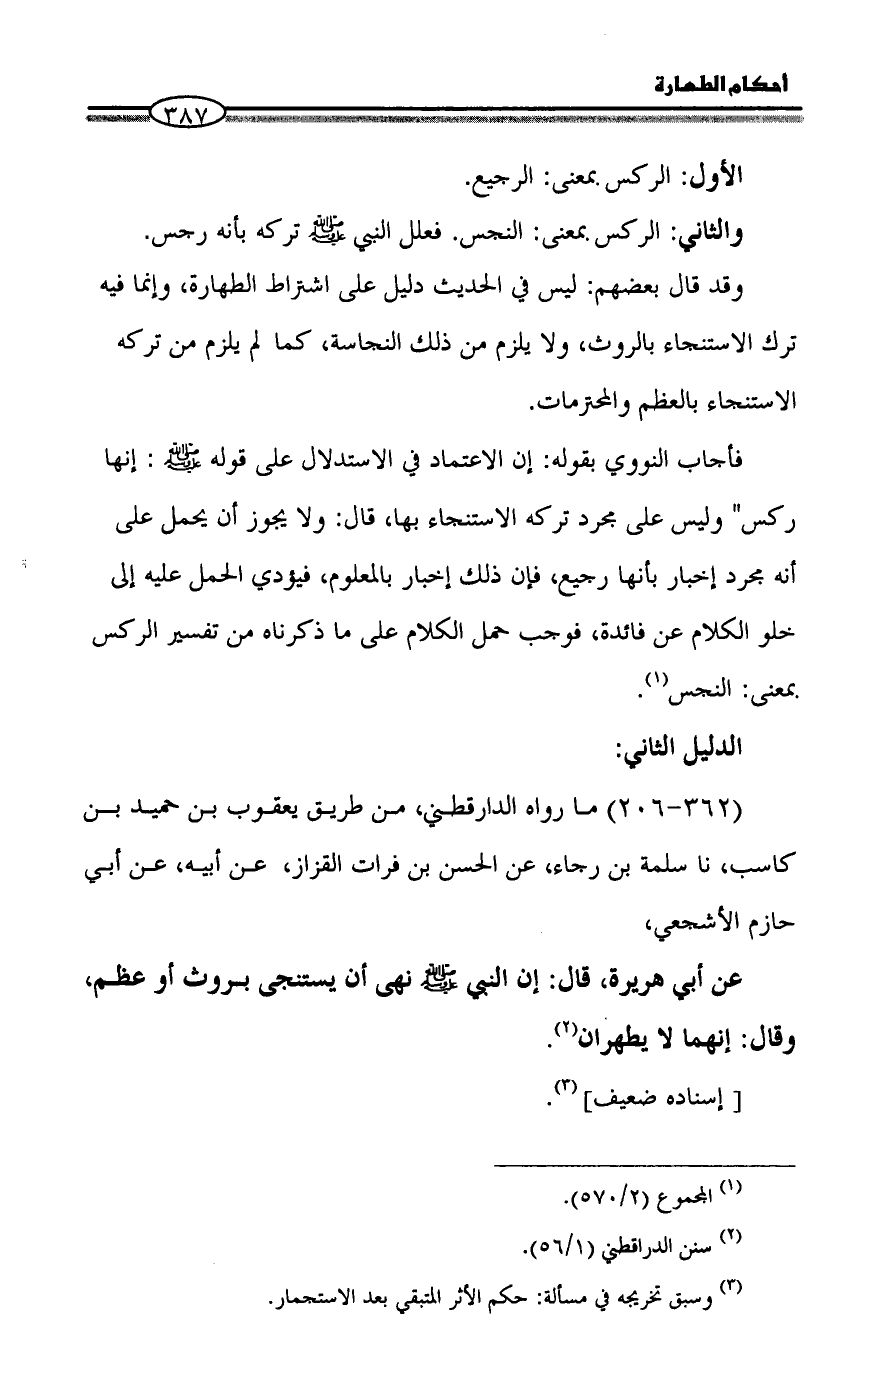 أحكام الطهارة
٣٨٧
الأول: الركس بمعنى: الرجيع.
والثاني: الركس بمعنى: النجس. فعلل النبي ﷺ تركه بأنه رجس.
وقد قال بعضهم: ليس في الحديث دليل على اشتراط الطهارة، وإنما فيه
ترك الاستنجاء بالروث، ولا يلزم من ذلك النجاسة، كما لم يلزم من تركه
الاستنجاء بالعظم والمحترمات.
فأجاب النووي بقوله: إن الاعتماد في الاستدلال على قوله ﷺ : إنها
ركس" وليس على مجرد تركه الاستنجاء بها، قال: ولا يجوز أن يحمل على
أنه مجرد إخبار بأنها رجيع، فإن ذلك إخبار بالمعلوم، فيؤدي الحمل عليه إلى
خلو الكلام عن فائدة، فوجب حمل الكلام على ما ذكرناه من تفسير الركس
بمعنى: النجس(١).
الدليل الثاني:
(٣٦٢-٢٠٦) ما رواه الدارقطني، من طريق يعقوب بن حميد بن
كاسب، نا سلمة بن رجاء، عن الحسن بن فرات القزاز، عن أبيه، عن أبي
حازم الأشجعي،
عن أبي هريرة، قال: إن النبي ﷺ نهى أن يستنجى بروث أو عظم،
وقال: إنهما لا يطهران(٢).
[ إسناده ضعيف] (٣).
(١) المجموع (٥٧٠/٢).
(٢) سنن الدراقطني (٥٦/١).
(٣) وسبق تخريجه في مسألة: حكم الأثر المتبقي بعد الاستجمار.